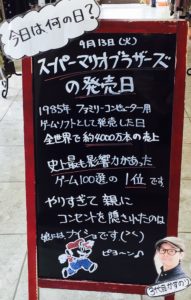 今日は何の日?
9月13日(火)
スーパーマリオブラザーズ
の発売日
1985年 ファミリーコンピューター用
ゲームソトとして発売した日
全世界で約4000万本の売上
史上最も影響力があった
ゲーム100選の1位です
やりすぎて親に
コンセントを隠されたのは
娘にはナイショです(>_<)
ピョ〜ン♪
3代目かずのり